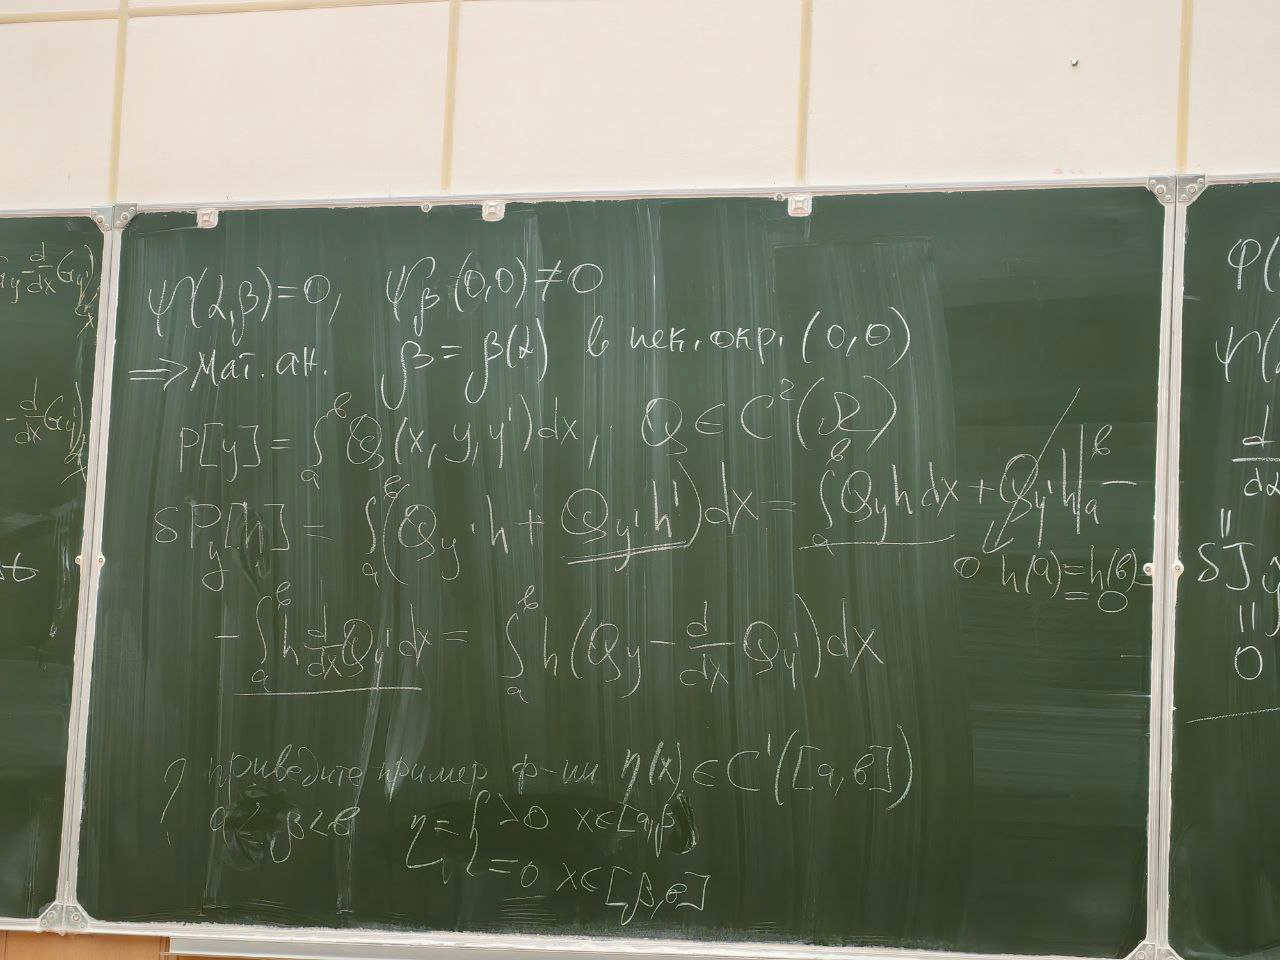 y - d/dx G_y'
- d/dx (G_y')
ψ(α,β)=0, ψ_β(0,0)≠0
⇒ Мат. ан. β = β(α) в нек. окр. (0,0)
P[y] = ∫_a^b Q(x, y, y')dx, Q ∈ C²(Ω)
δP_y[h] = ∫_a^b (Q_y · h + Q_y' h')dx = ∫_a^b Q_y h dx + Q_y' h |_a^b −
0 h(a)=h(b)=
=0
− ∫_a^b h d/dx Q_y' dx = ∫_a^b h(Q_y − d/dx Q_y')dx
? приведите пример ф-ии η(x) ∈ C¹([a,b])
a < β < b η = { >0 x∈[a,β)
=0 x∈[β,b]
φ(
ψ(
d
dα
"
δJ
"
0